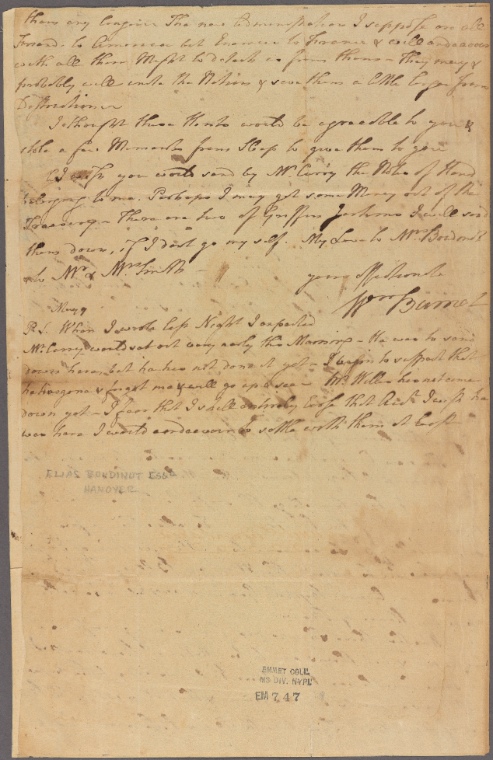 them any longer. The new Administration I suppose are all
Friends to America but Enemies to France & will endeavour
with all their Might to detach us from them — they may &
probably will unite the Nation & save them a little longer from
Destruction
I thought these Hints would be agreeable to you &
stole a few Moments from Sleep to give them to you
I wish you would send by Mr. Camp the Note of Hand
belonging to me. Perhaps I may get some Money out of the
Treasury — There are two of Griffin Jacksons I will send
them down, if I dont go my self. My Love to Mr Boudinot
Mr & Mrs Smith
your affectionate
Wm Burnet
May 9
P.S. When I wrote last Night I expected
Mr. Camp would set out very early this Morning — He was to
but he has not done it yet — I begin to suspect that
he is gone & forgot me & will go up & see — Mr. has not come
down yet — I fear that I shall entirely lose that I wish he
was here I would endeavour to settle with them at least
ELIAS BOUDINOT ESQR
HANOVER
EMMET COLL.
MS DIV. NYPL
EM 747